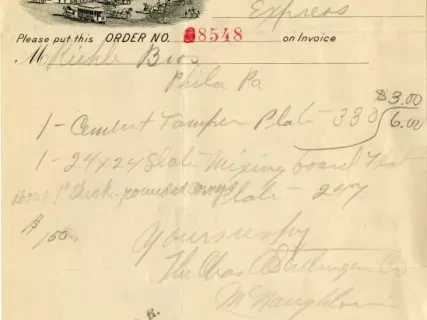 Express
Please put this ORDER NO. 8548 on Invoice
M Riehle Bros
Phila Pa
1 - Cement Tamper Plate 330 $3.00
6.00
1 - 24x24 Slate Mixing board Flat
about 1" thick. rounded Plate 247
$1.50
Yours resptly
The Chas Co
McNaughton
R.